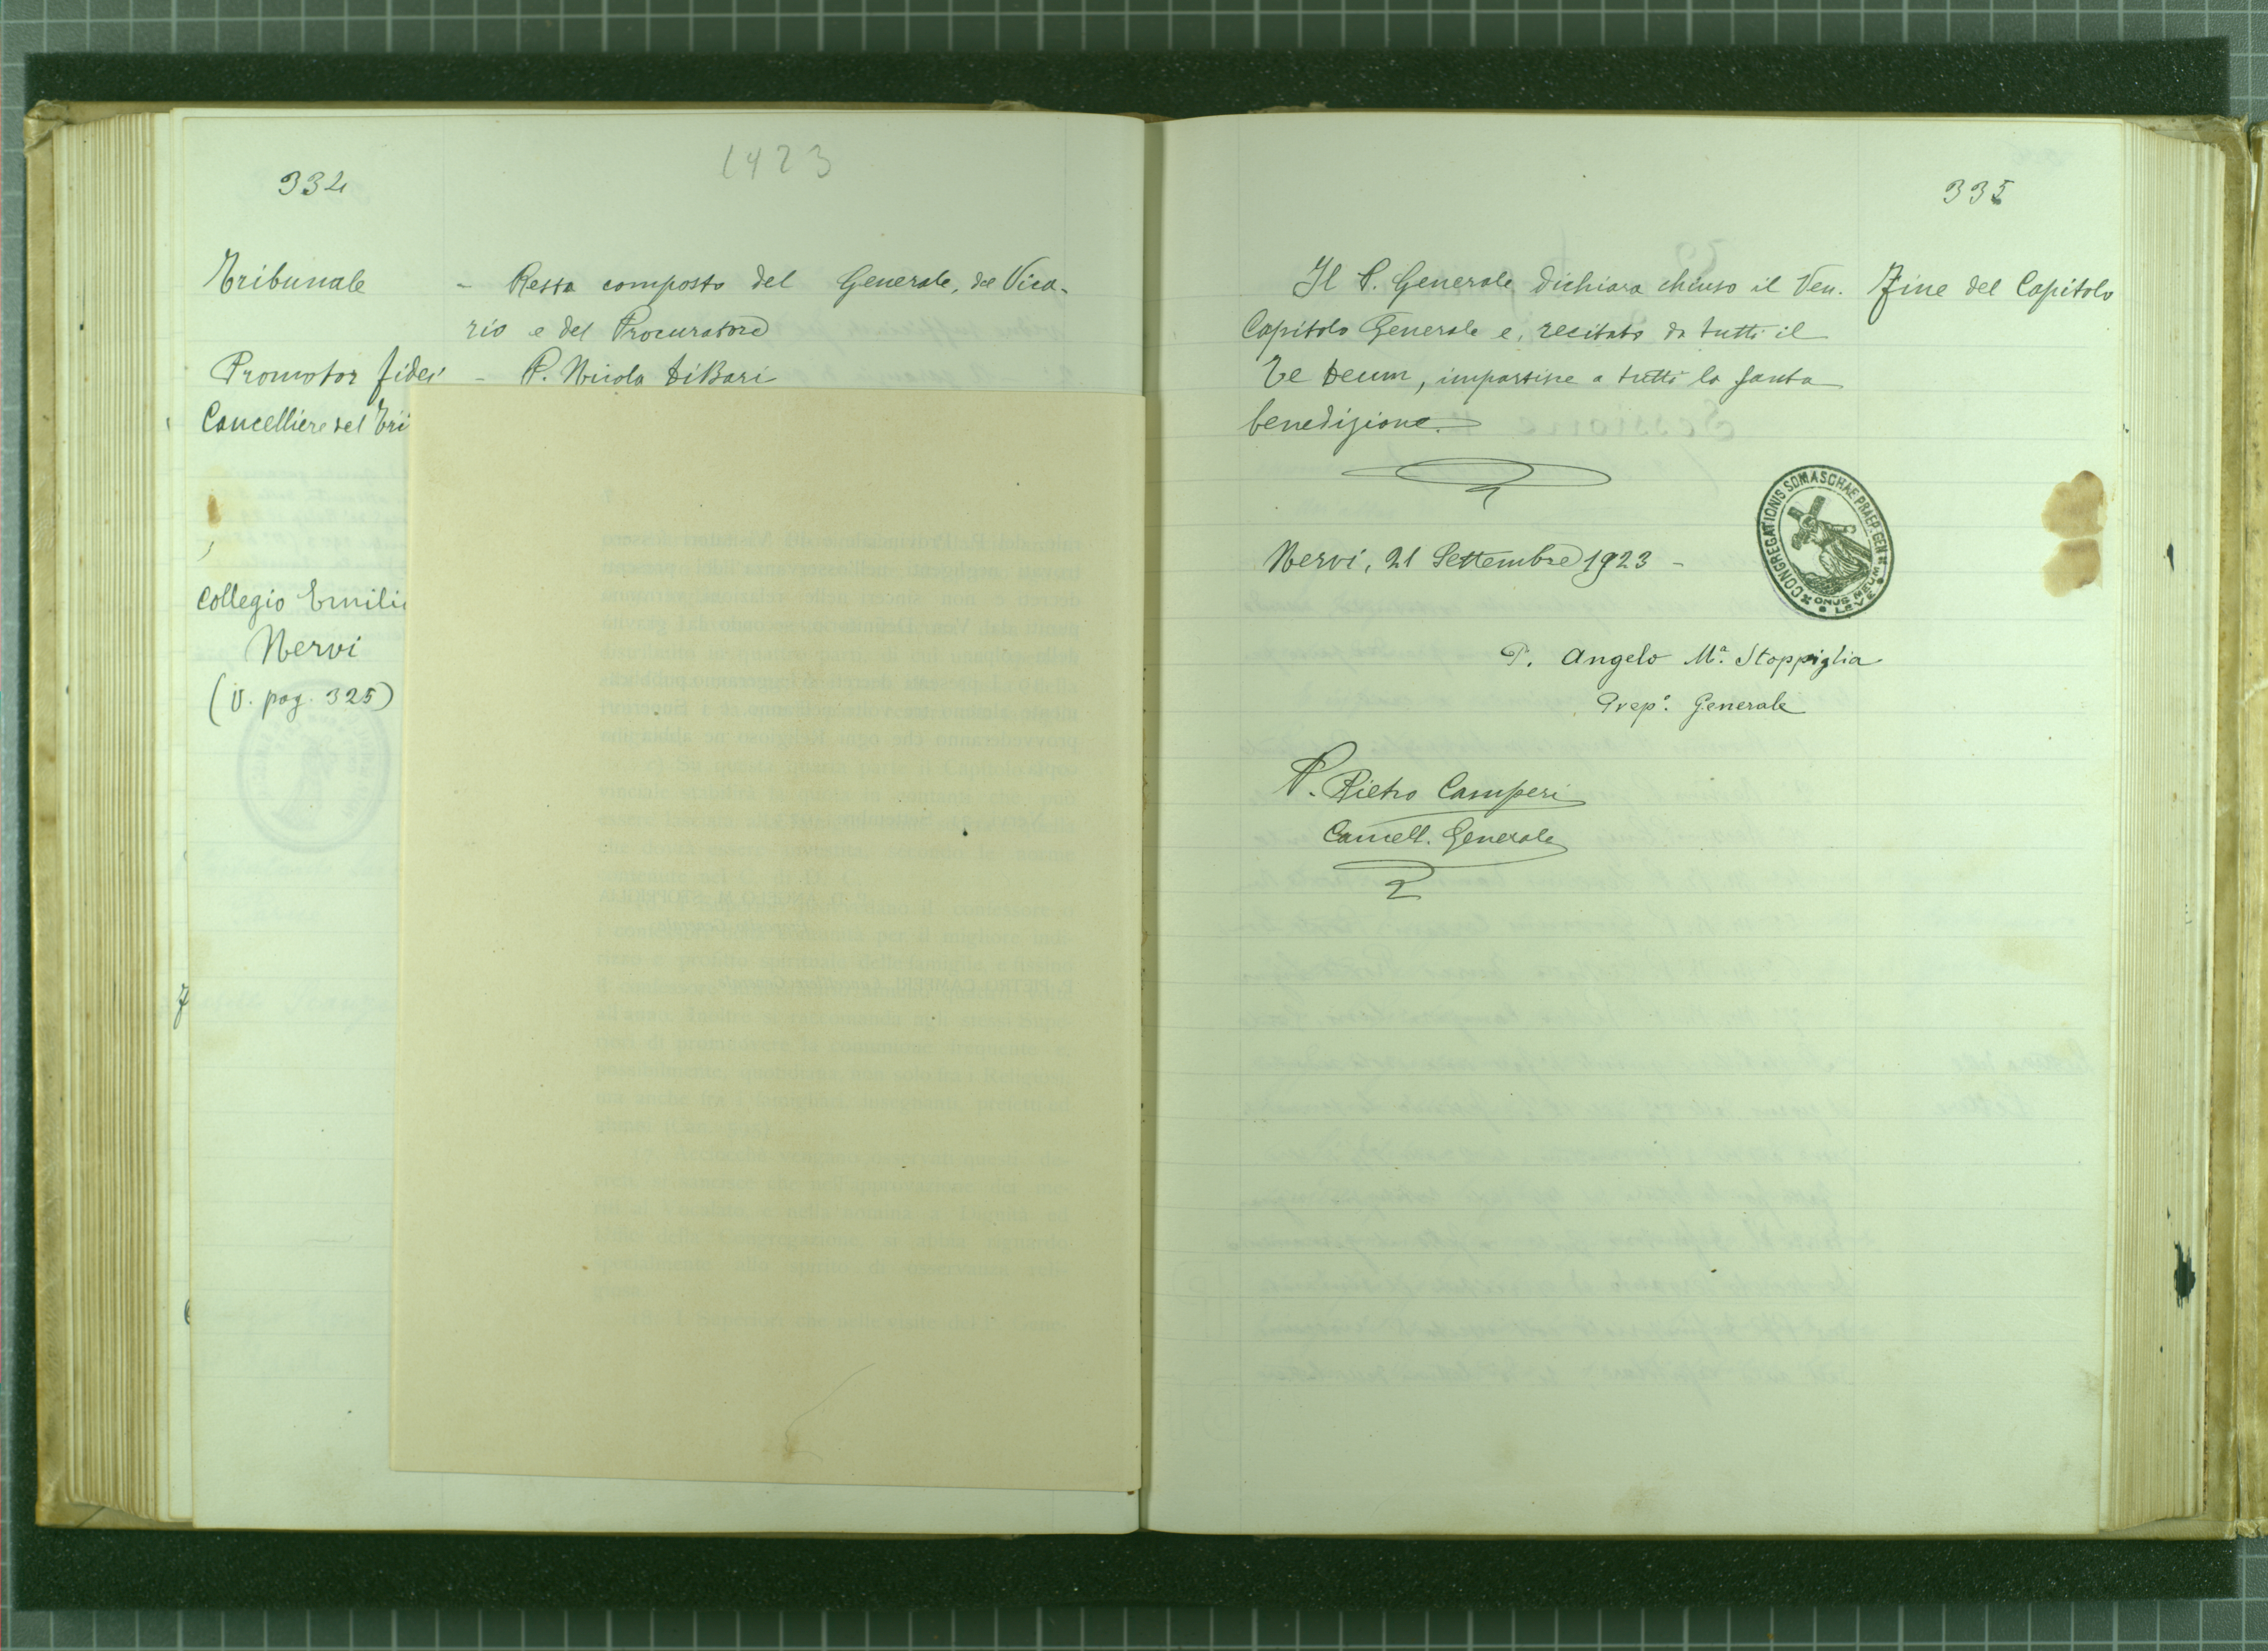 334
1923
Tribunale - Resta composto del Generale, del Vica-
rio e del Procuratore
Promotor fidei - P. Nicola DiBari
Cancelliere del Tri
Collegio Emili
Nervi
(V. pag. 325)
335
Il P. Generale dichiara chiuso il Ven.
Capitolo Generale e, recitato da tutti il
Te Deum, impartisce a tutti la santa
benedizione.
Fine del Capitolo
CONGREGATIONIS SOMASCHAE PRAEP. GEN
ONUS MEUM LEVE
Nervi, 21 Settembre 1923 -
P. Angelo Mª. Stoppiglia
Prep. Generale
P. Pietro Camperi
Cancell. Generale